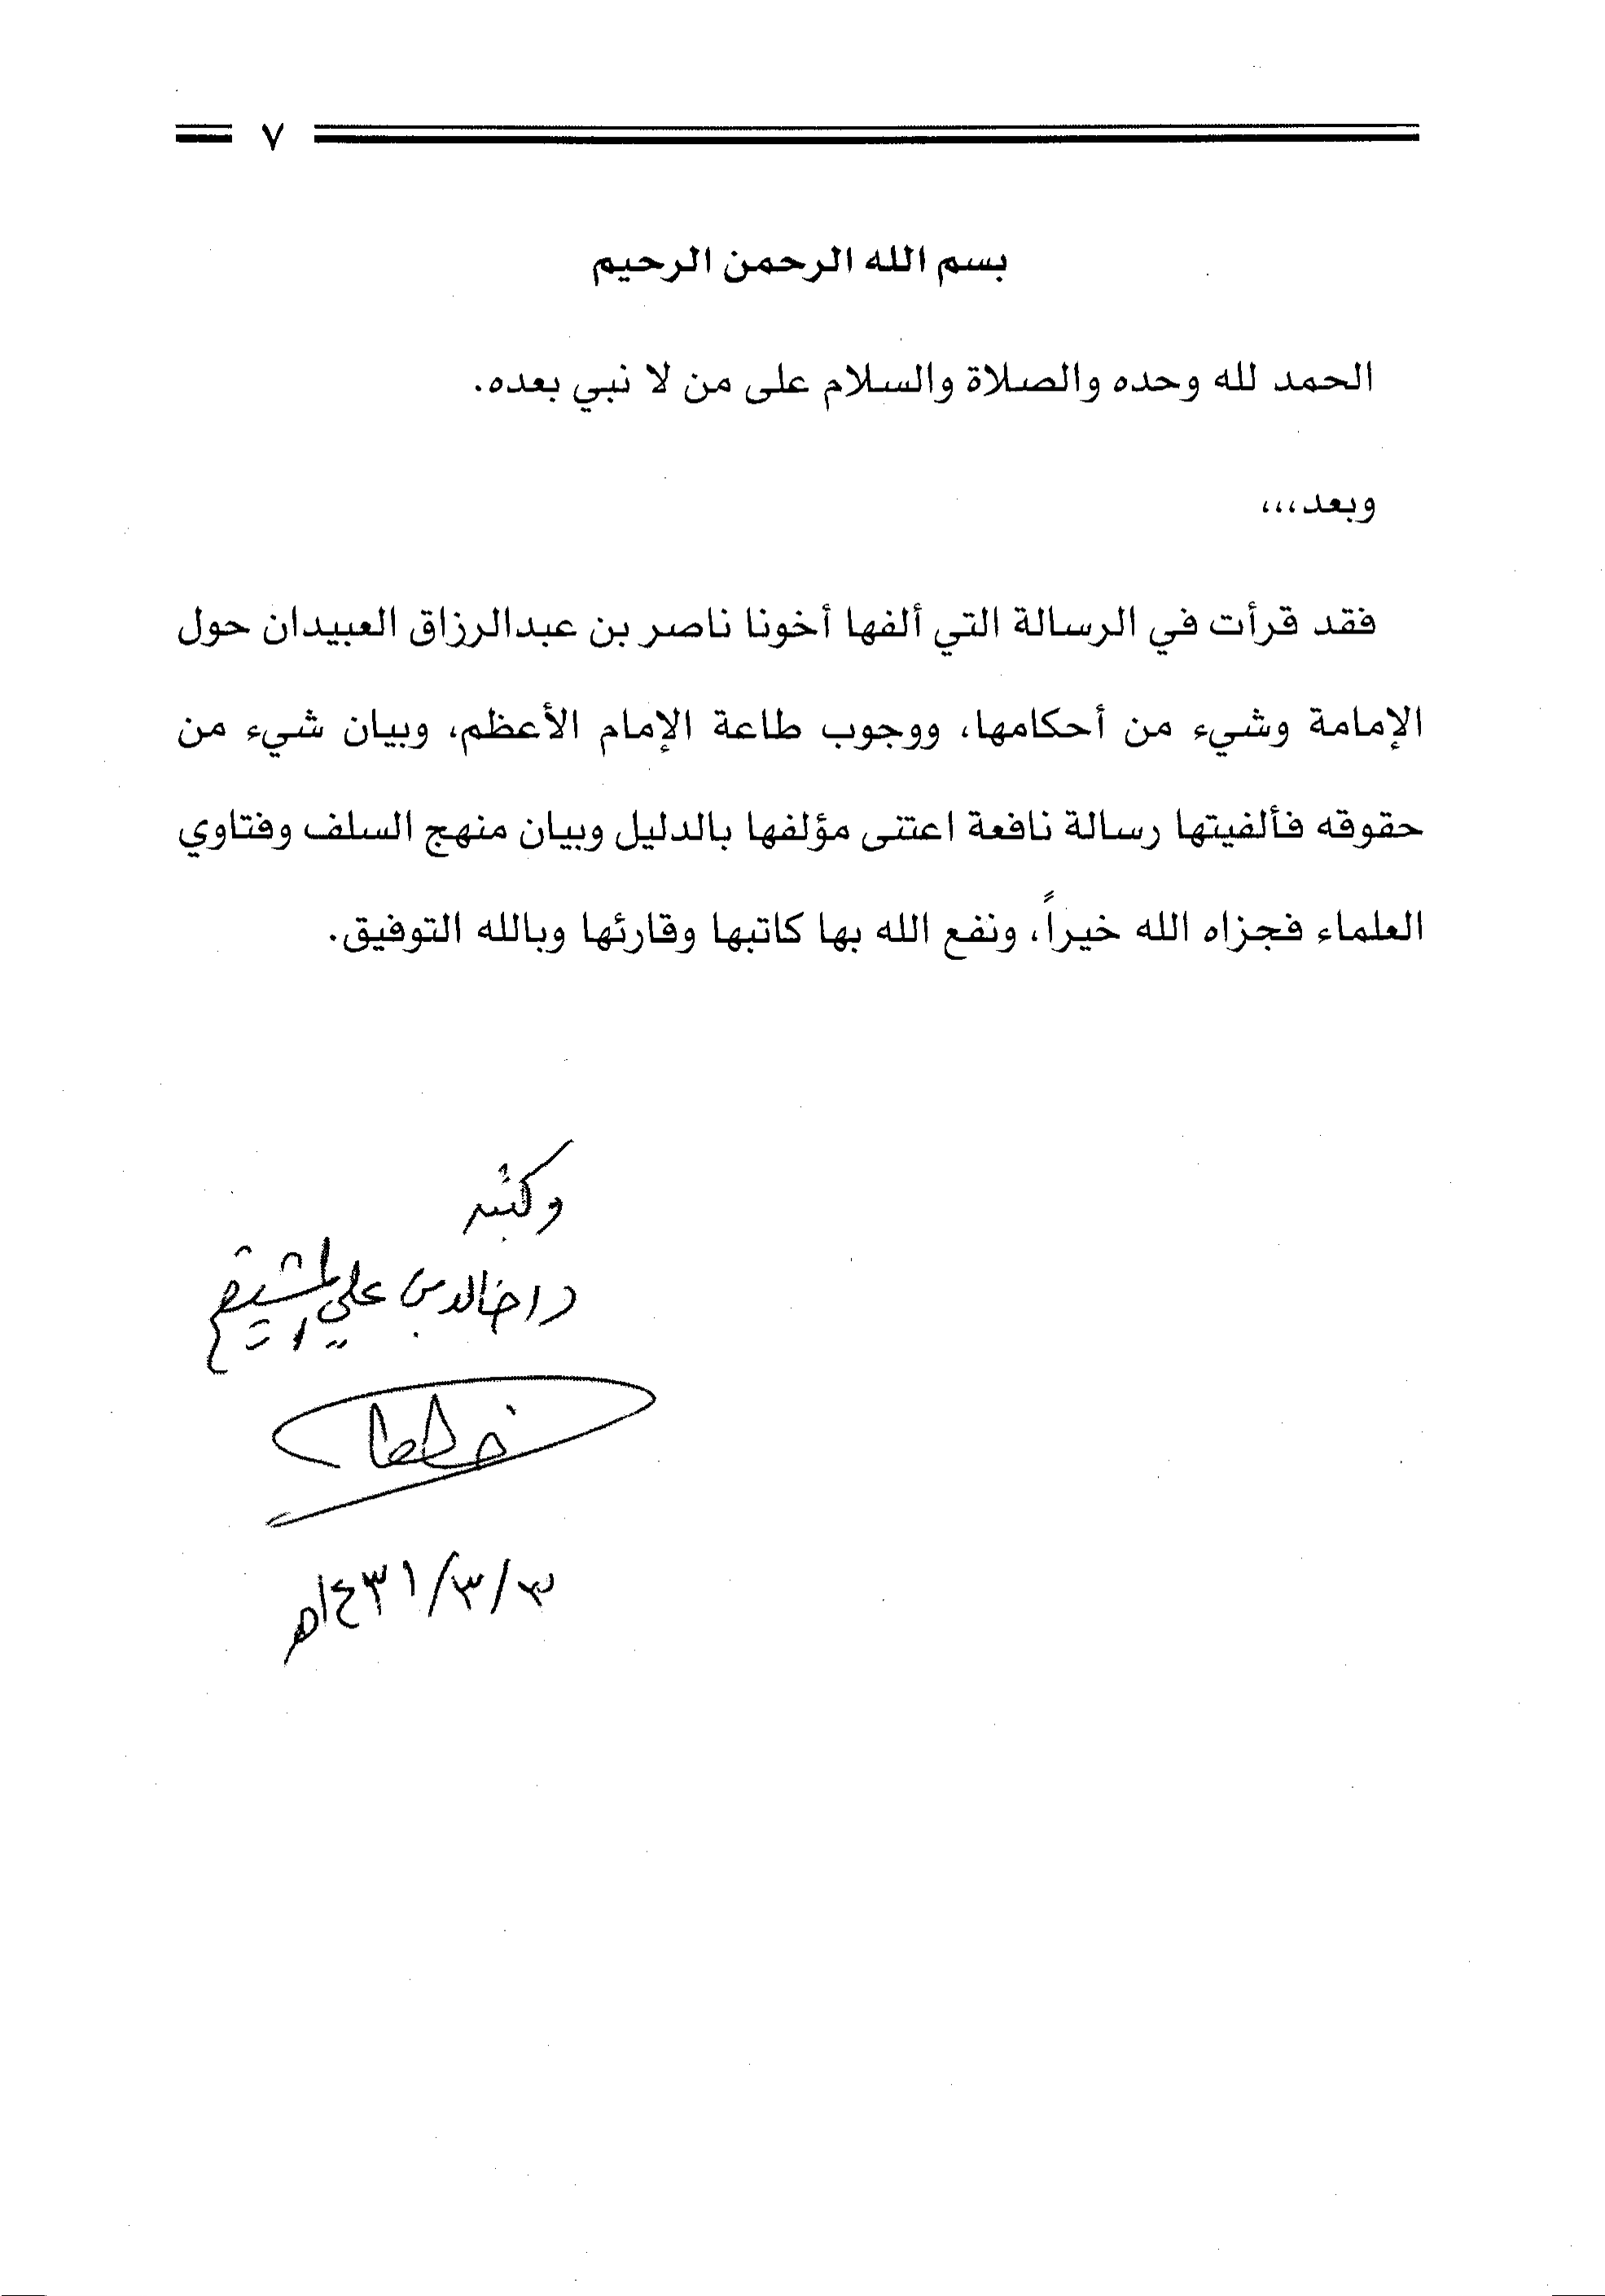 ٧
بسم الله الرحمن الرحيم
الحمد لله وحده والصلاة والسلام على من لا نبي بعده.
وبعد،،،
فقد قرأت في الرسالة التي ألفها أخونا ناصر بن عبدالرزاق العبيدان حول
الإمامة وشيء من أحكامها، ووجوب طاعة الإمام الأعظم، وبيان شيء من
حقوقه فألفيتها رسالة نافعة اعتنى مؤلفها بالدليل وبيان منهج السلف وفتاوي
العلماء فجزاه الله خيراً، ونفع الله بها كاتبها وقارئها وبالله التوفيق.
وكتبه
د/خالد بن علي المشيقح
٣/٣/١٤٣١هـ